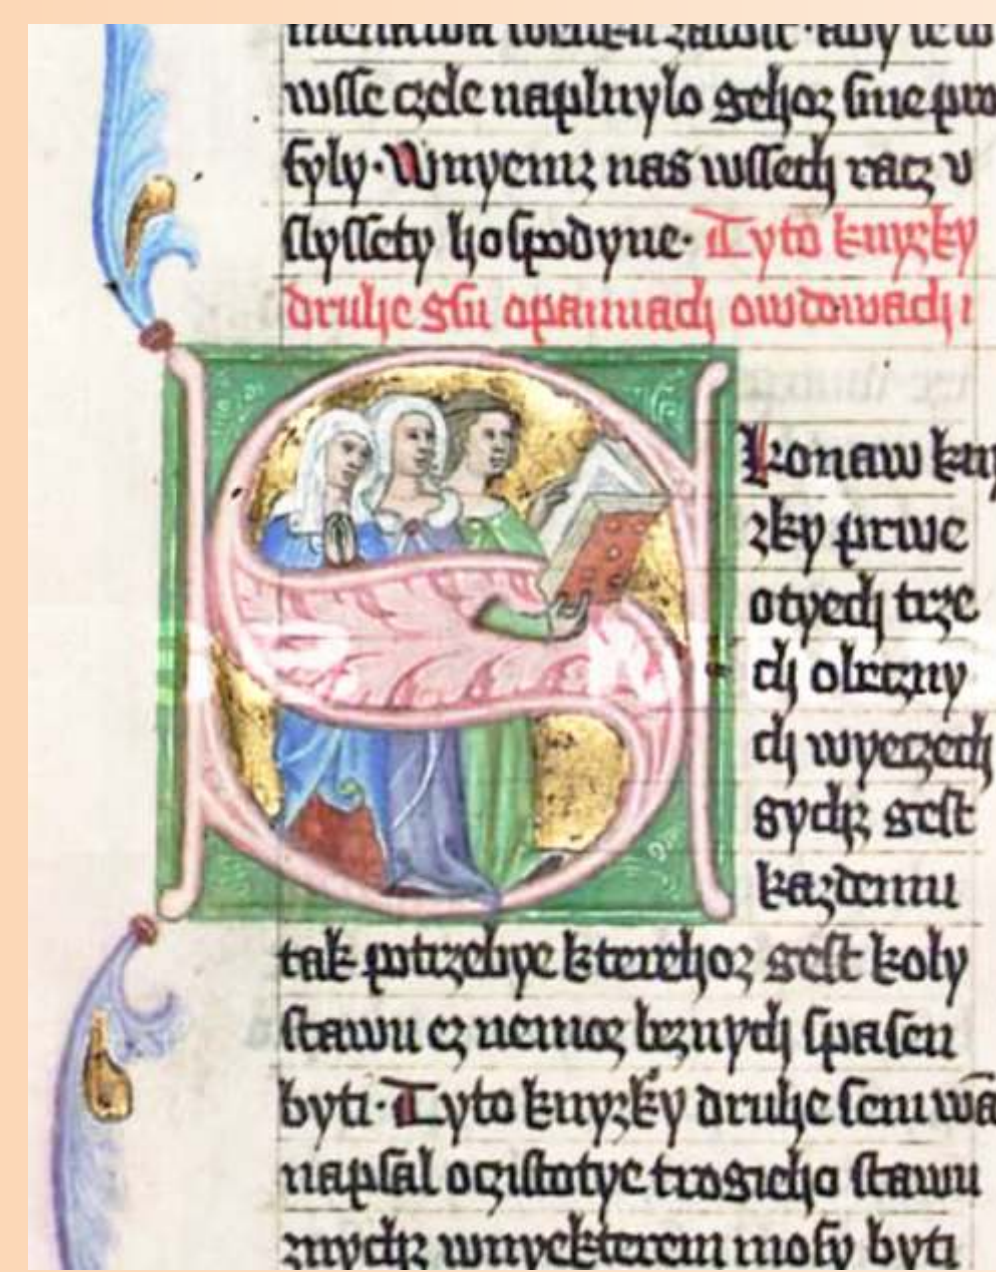 aby
wſſe czele naplnylo gehoz ſme pro
ſyly · Wnyemz nas wſſech racz v
ſlyſſety hoſpodyne · Tyto knyzky
druhe gſu opannach owdowach i
Skonaw kny
zky prwe
otyech trze
ch obeczny
ch wyeczech
gychz geſt
kazdemu
tak potrzebye kterehoz geſt koly
ſtawu cz nemoz bznych ſpaſen
byti · Tyto knyzky druhe ſem wā
napſal ocziſtotye trogieho ſtawu
znychz wnyekterem moſy byti